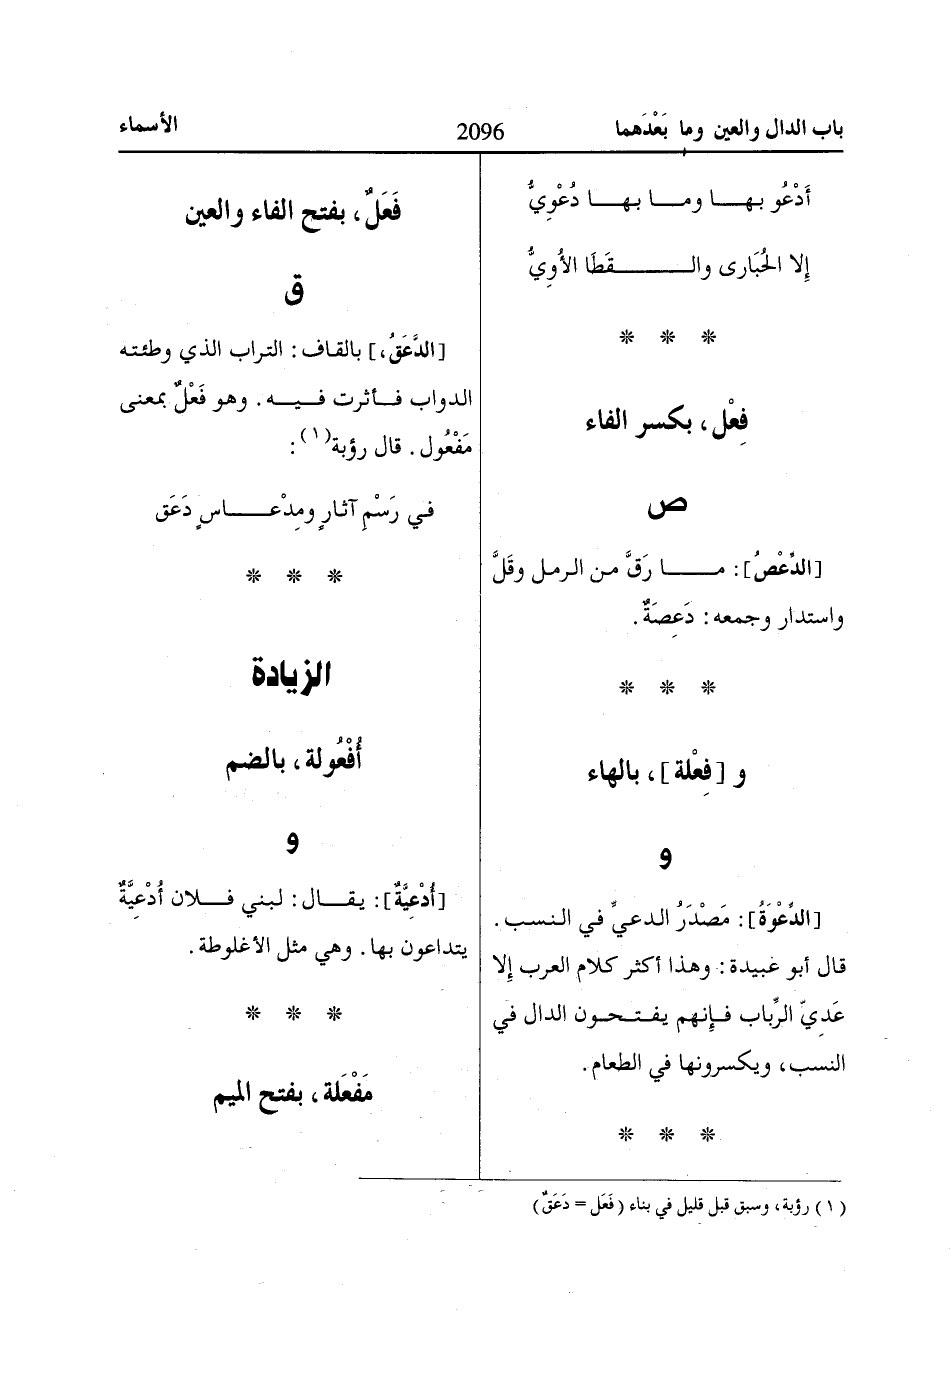 باب الدال والعين وما بَعْدَهما 2096 الأسماء
أَدْعُو بهـــا ومـــا بهـــا دُعْوِيُّ
إلا الحُبَارى والـــــــقَطَا الأُوِيُّ
* * *
فِعْل، بكسر الفاء
ص
[الدِّعْصُ]: مـــــا رَقَّ من الرمل وقَلَّ
واستدار وجمعه: دَعِصَةٌ.
* * *
و [فِعْلة]، بالهاء
و
[الدِّعْوَةُ]: مَصْدَرُ الدعيِّ في النسب.
قال أبو عبيدة: وهذا أكثر كلام العرب إلا
عَدِيّ الرِّباب فـإنهم يفـتـحـون الدال في
النسب، ويكسرونها في الطعام.
* * *
فَعَلٌ، بفتح الفاء والعين
ق
[الدَّعَقُ،] بالقاف: التراب الذي وطئته
الدواب فـأثرت فـيـه. وهو فَعْلٌ بمعنى
مَفْعُول. قال رؤبة(١):
في رَسْمِ آثارٍ ومِدْعـــاسٍ دَعَق
* * *
الزيادة
أُفْعُولة، بالضم
و
[أُدْعِيَّةٌ]: يقـال: لبني فـلان أُدْعِيَّةٌ
يتداعون بها. وهي مثل الأغلوطة.
* * *
مَفْعَلة، بفتح الميم
(١) رؤبة، وسبق قبل قليل في بناء (فَعَل = دَعَقٌ)